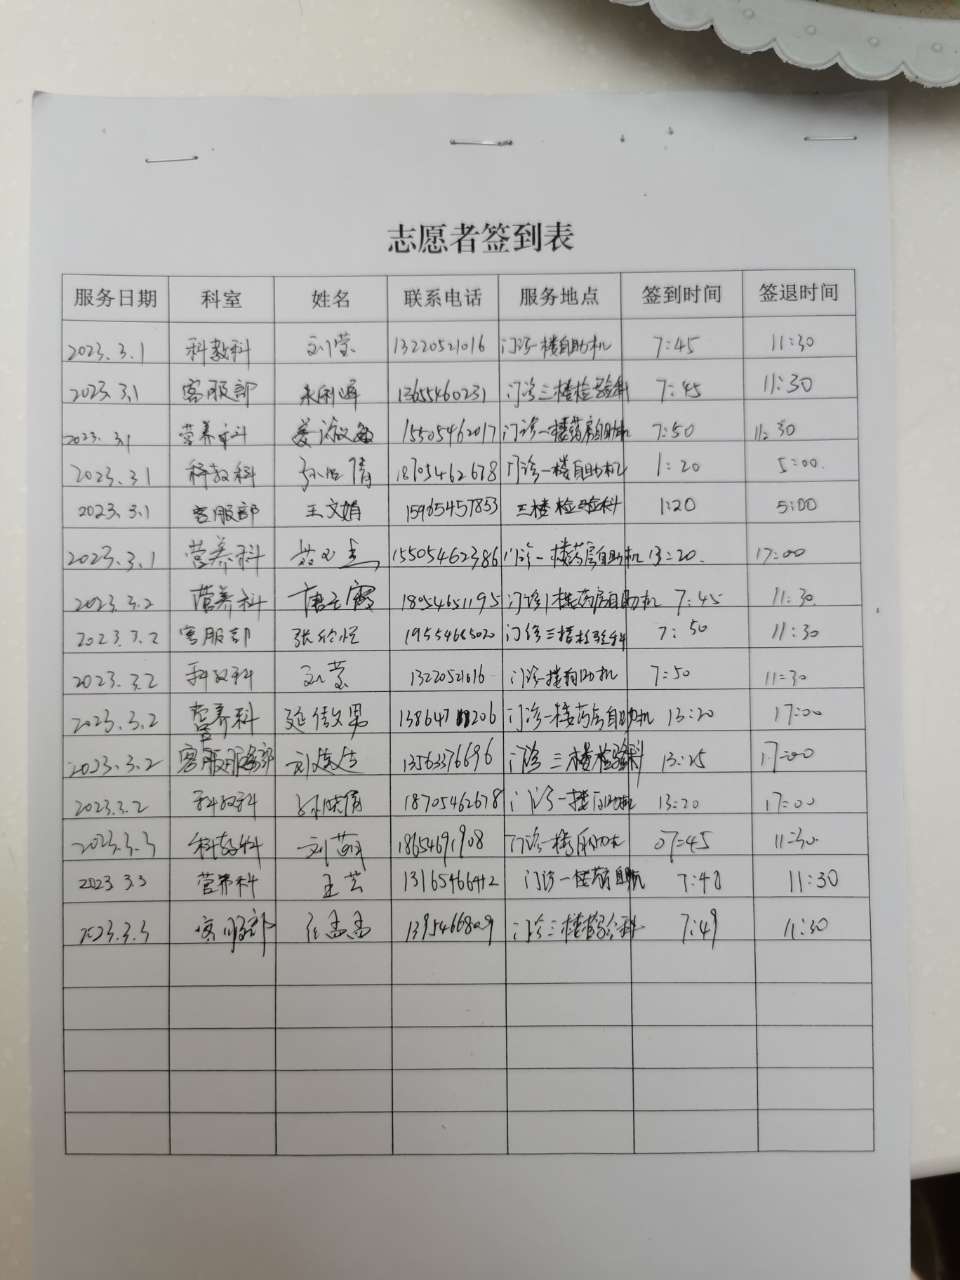 志愿者签到表
服务日期 科室 姓名 联系电话 服务地点 签到时间 签退时间
2023.3.1 科教科 刘莹 13220521016 门诊一楼自助机 7:45 11:30
2023.3.1 客服部 13655460231 门诊三楼检验科 7:45 11:30
2023.3.1 营养科 15505462017 门诊一楼药房自助机 7:50 11:30
2023.3.1 科教科 18705462678 门诊一楼自助机 1:20 5:00
2023.3.1 客服部 王文娟 15965457853 三楼检验科 1:20 5:00
2023.3.1 营养科 15505462386 门诊一楼药房自助机 13:20 17:00
2023.3.2 营养科 18954651195 门诊一楼药房自助机 7:45 11:30
2023.3.2 客服部 19554665020 门诊三楼检验科 7:50 11:30
2023.3.2 科教科 刘莹 13220521016 门诊一楼自助机 7:50 11:30
2023.3.2 营养科 门诊一楼药房自助机 13:20 17:00
2023.3.2 客服服务部 13563376696 门诊三楼检验科 13:25 17:00
2023.3.2 科教科 18705462678 门诊一楼自助机 13:20 17:00
2023.3.3 科教科 18654691908 门诊一楼自助机 07:45 11:30
2023.3.3 营养科 王芸 13165466412 门诊一楼药房自助机 7:48 11:30
2023.3.3 客服部 任孟孟 1395466809 门诊三楼检验科 7:49 11:30